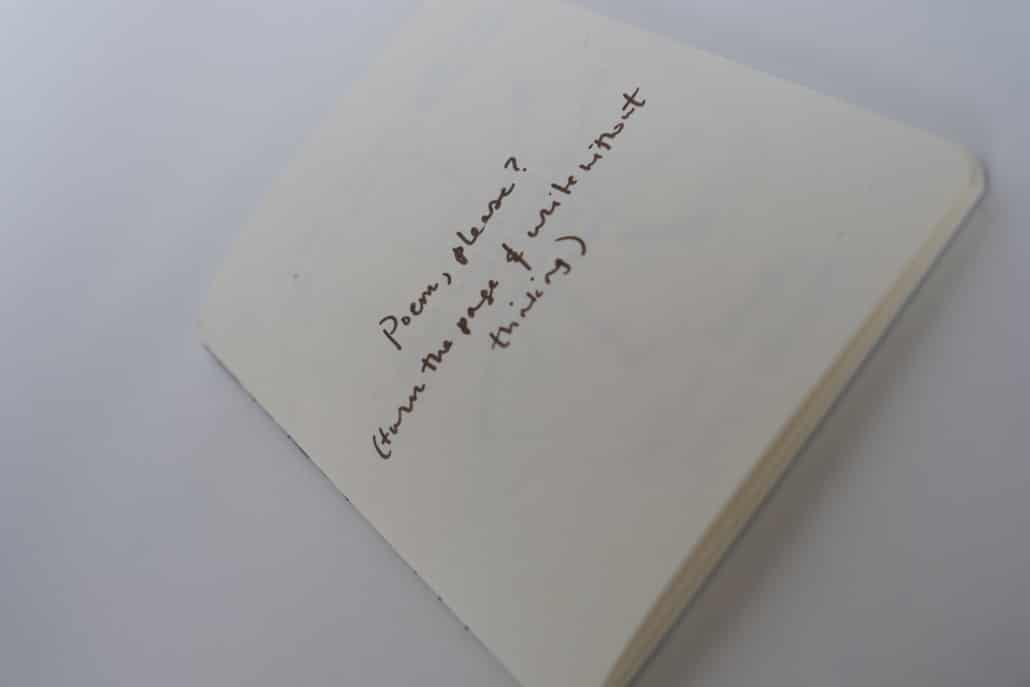 Poem, please?
(turn the page & write without
thinking)